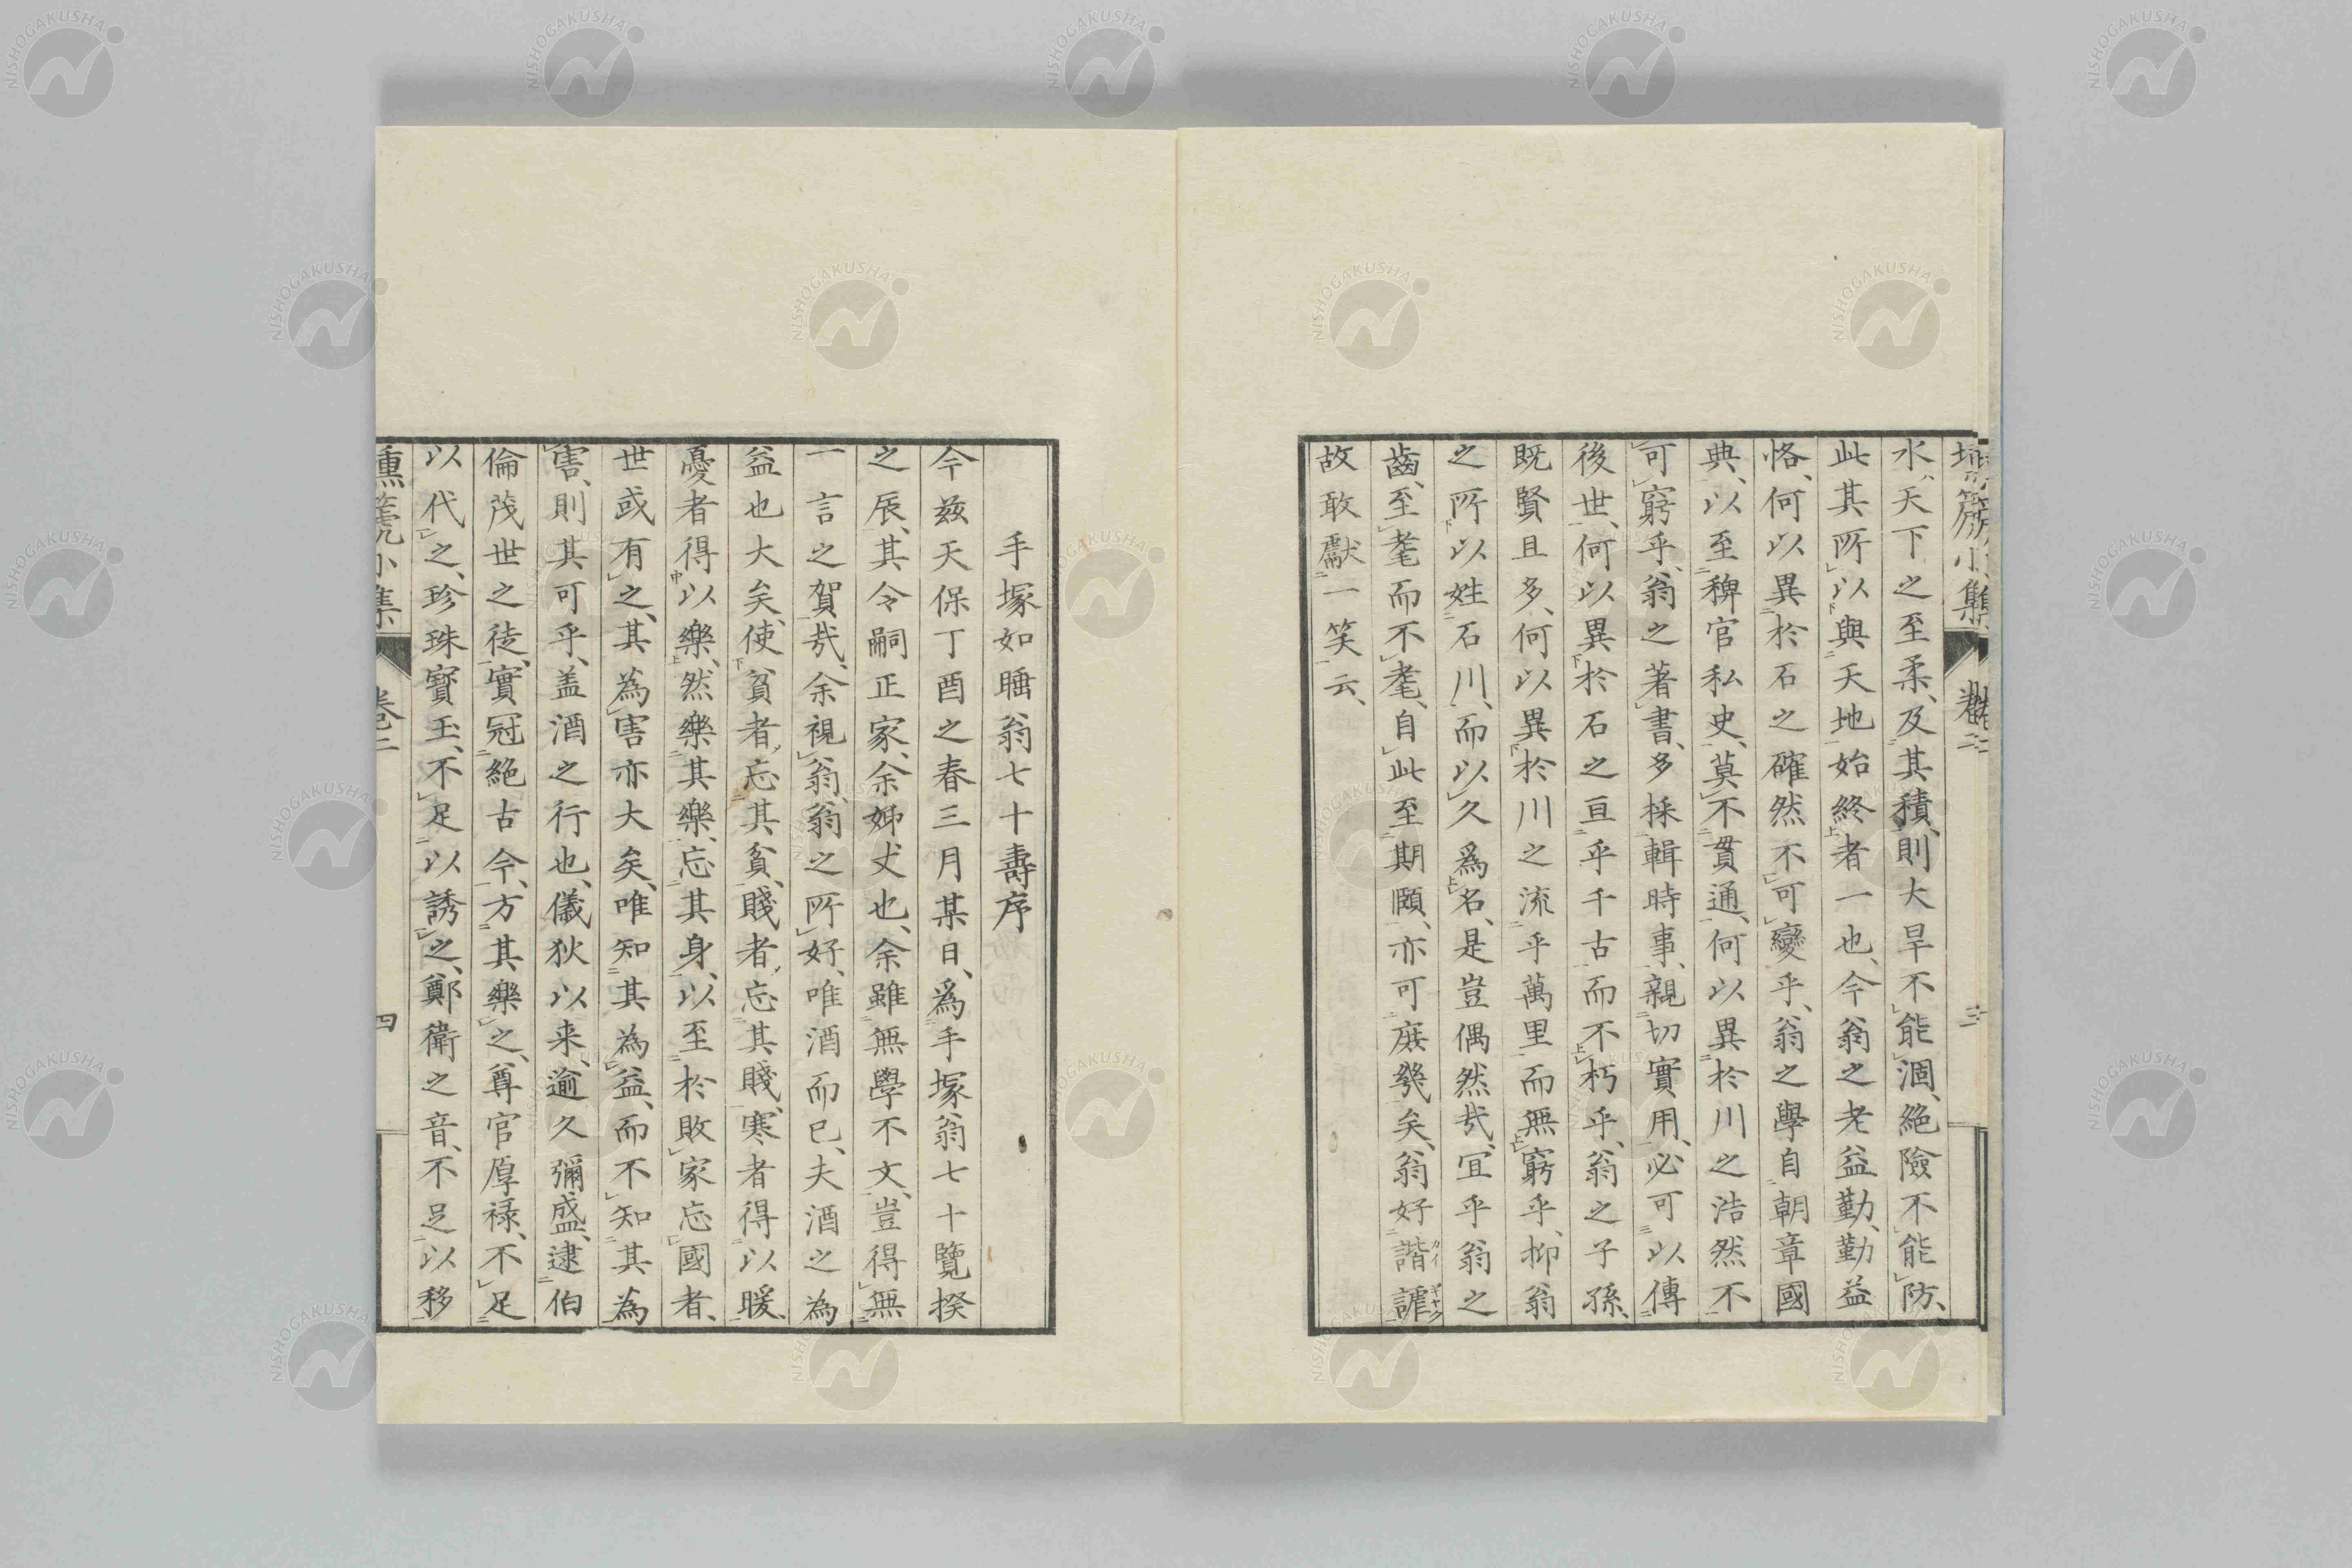 水、天下之至柔、及其積、則大旱不能涸、絕險不能防、
此其所以與天地始終者一也、今翁之老益勤、勤益
恪、何以異於石之確然不可變乎、翁之學自朝章國
典、以至稗官私史、莫不貫通、何以異於川之浩然不
可窮乎、翁之著書、多採輯時事、親切實用、必可以傳
後世、何以異於石之亘乎千古而不朽乎、翁之子孫、
既賢且多、何以異於川之流乎萬里而無窮乎、抑翁
之所以姓石川、而以久爲名、是豈偶然哉、宜乎翁之
齒、至耄而不耄、自此至期頤、亦可庶幾矣、翁好諧謔
カイ ギヤク
故敢獻一笑云、
手塚如睡翁七十壽序
今茲天保丁酉之春三月某日、爲手塚翁七十覽揆
之辰、其令嗣正家、余姊丈也、余雖無學不文、豈得無
一言之賀哉、余視翁、翁之所好、唯酒而已、夫酒之為
益也大矣、使貧者忘其貧、賤者忘其賤、寒者得以暖、
憂者得以樂、然樂其樂、忘其身、以至於敗家忘國者、
世或有之、其為害亦大矣、唯知其為益、而不知其為
害、則其可乎、盖酒之行也、儀狄以来、逾久彌盛、逮伯
倫茂世之徒、實冠絕古今、方其樂之、尊官厚禄、不足
以代之、珍珠寶玉、不足以誘之、鄭衛之音、不足以移
小集 卷二 四
NISHOGAKUSHA